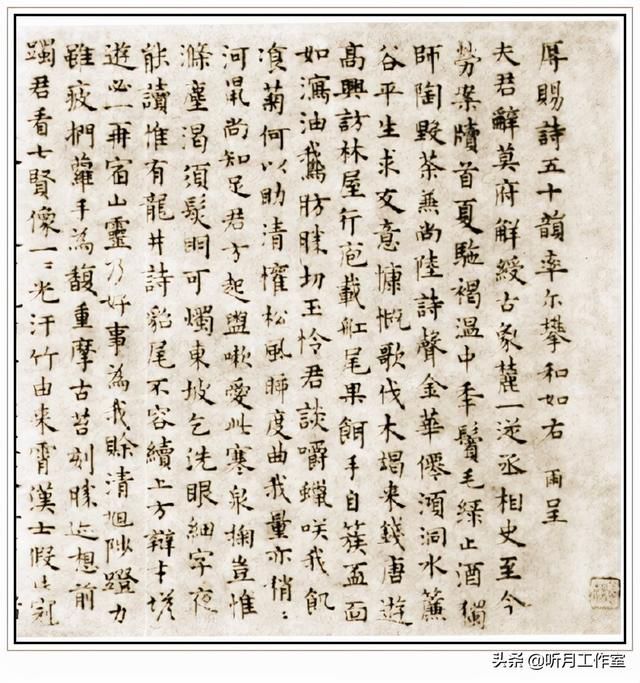 辱賜詩五十韻率尓攀和如右 雨呈
夫君辭莫府解綬古象麓一逆丞相史至今
勞案牘首夏驅褐溫中秊鬢毛綠止酒獨
師陶毀茶兼尚陸詩聲金華儒澒洞水簾
谷平生求友意慷慨歌伐木朅来錢唐遊
高興訪林屋行庖載舡尾果餌手自簇盃面
如瀉油我肪勝切玉怜君談嚼蠟咲我飢
飡菊何以助清懽松風時度曲我量亦稍〻
河鼠尚知足君方起盥嗽愛此寒泉掬豈惟
滌塵渴須髮明可燭東坡乞洗眼細字夜
能讀惟有龍井詩貂尾不容續上方辯才塔
遊必一再宿山靈乃好事為我賒清旭陟蹬力
雖疲捫蘿手為馥重摩古苔刻勝迹想前
躅君看七賢像一〻光汗竹由来霄漢士假冠
头条 @听月工作室